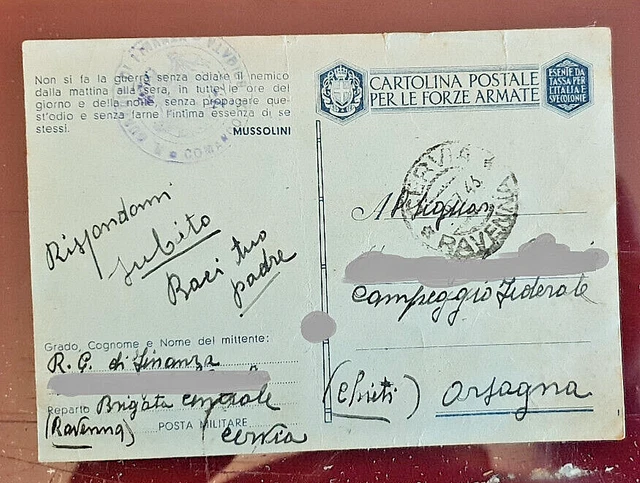 Non si fa la guerra senza odiare il nemico
dalla mattina alla sera, in tutte le ore del
giorno e della notte, senza propagare que-
st'odio e senza farne l'intima essenza di se
stessi.
MUSSOLINI
COMANDO
CARTOLINA POSTALE
PER LE FORZE ARMATE
ESENTE DA
TASSA PER
L'ITALIA E
SUE COLONIE
CERVIA
RAVENNA
Rispondami
subito
Baci tuo
padre
Campeggio Federale
(Chieti) Orsogna
Grado, Cognome e Nome del mittente:
R. G. di Finanza
Reparto Brigata Centrale
(Ravenna) POSTA MILITARE Cervia